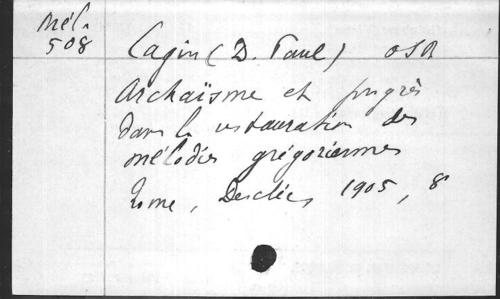 Mél.
508
Cagin (D. Paul) OSB
Archaïsme et progrès
dans la restauration des
mélodies grégoriennes
Rome, Desclée, 1905, 8